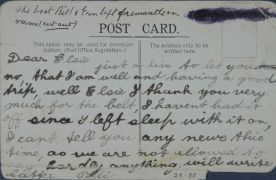 the boat Bill & Ern left fremantle in
name (cut out)
POST CARD.
This space may be used for communi-
cation. (Post Office Regulation.)
The Address only to be
written here.
Dear Elsie just a line to let you
no, that I am well and having a good
trip, well Elsie I thank you very
much for the belt, I havent had it
off since I left sleep with it on
I cant tell you any news this
time, as we are not allowed to
say anything will write
Later